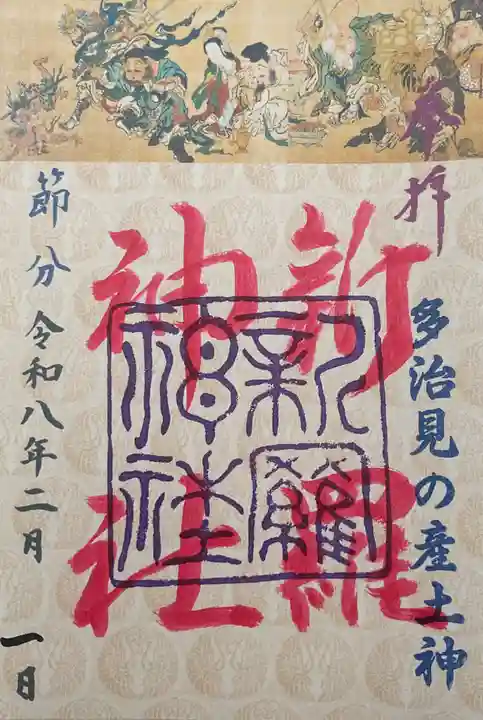 奉拝
多治見の産土神
新羅
神社
新羅
神社
節分 令和八年二月
一日